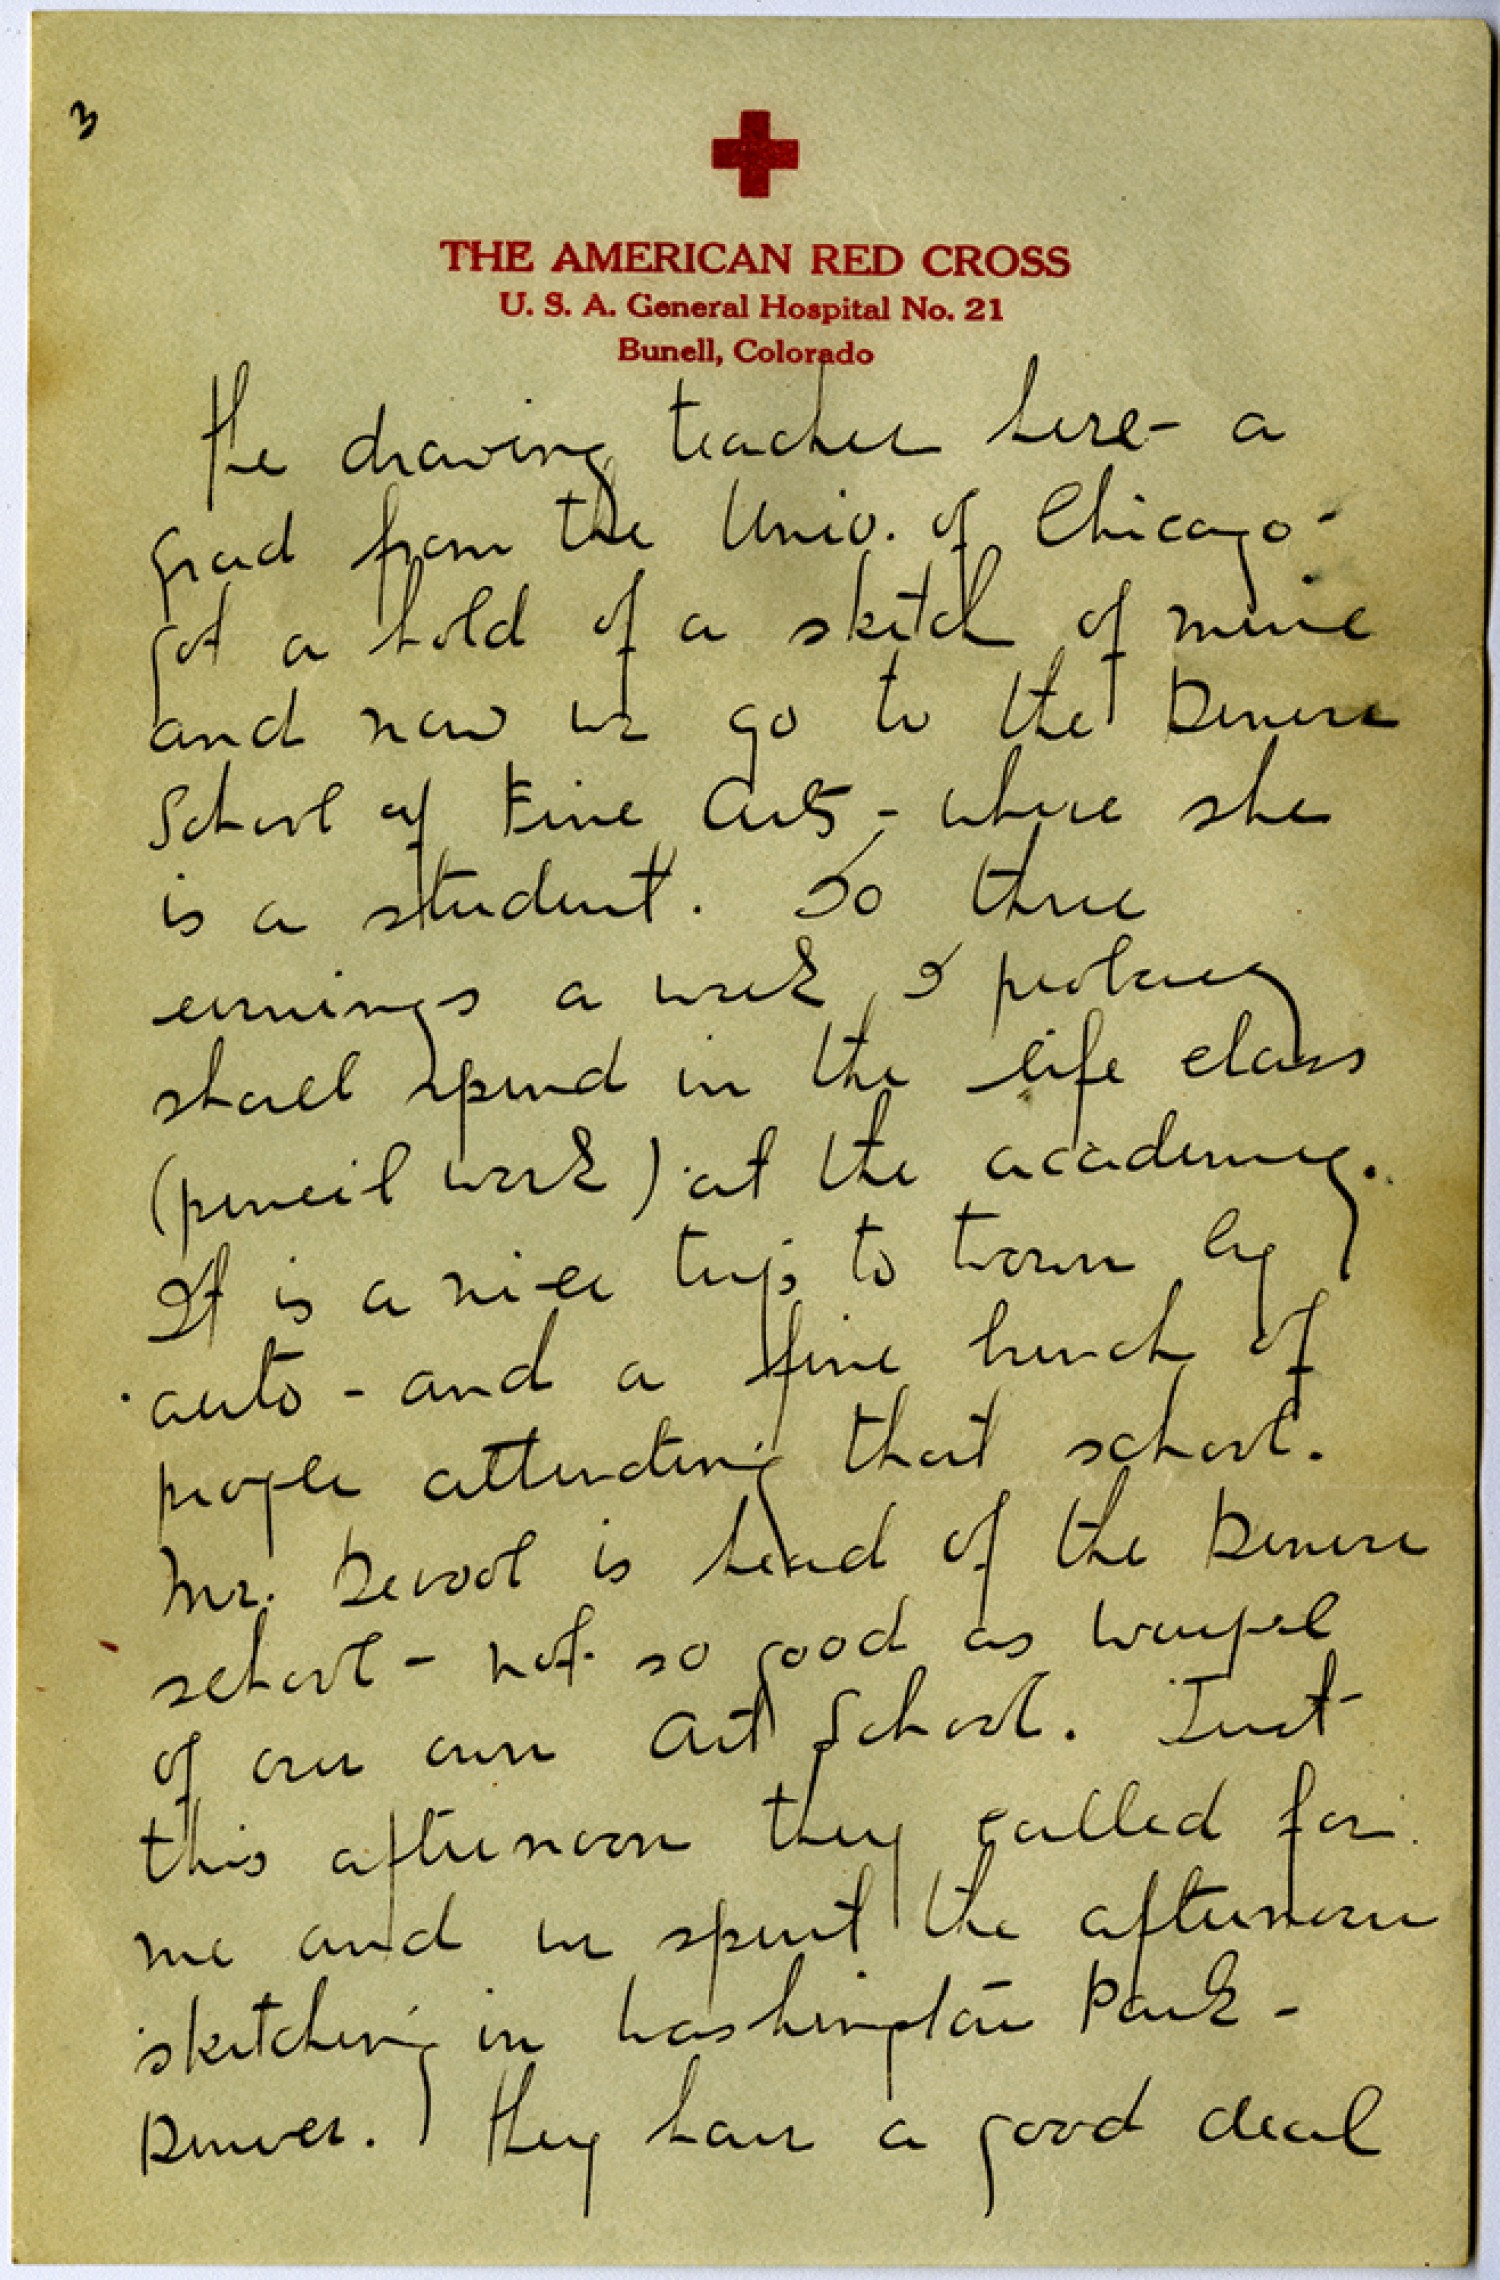 3
THE AMERICAN RED CROSS
U. S. A. General Hospital No. 21
Bunell, Colorado
The drawing teacher here - a
grad from the Univ. of Chicago -
got a hold of a sketch of mine
and now we go to the Denver
School of Fine Arts - where she
is a student. So three
evenings a week, I probably
shall spend in the life class
(pencil work) at the academy.
It is a nice trip to town by
auto - and a fine bunch of
people attending that school.
Mr. is head of the Denver
school - not so good as
of our own Art School. Just
this afternoon they called for
me and we spent the afternoon
sketching in Washington Park -
Denver. They have a good deal